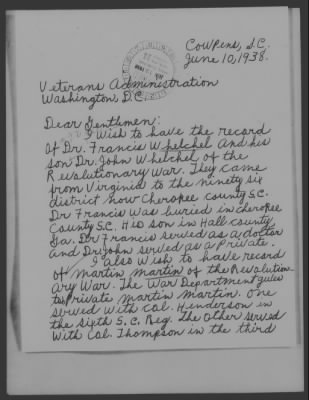 Cowpens, S.C.
June 10, 1938.
Veterans Administration
Washington, D.C.
Dear Gentlemen:
I wish to have the record
of Dr. Francis Whelchel and his
son Dr. John Whelchel of the
Revolutionary War. They came
from Virginia to the ninety six
district now Cherokee county S.C.
Dr Francis was buried in cherokee
County S.C. His son in Hall county,
Ga. Dr Francis served as a doctor
and Dr John served as a Private.
I also wish to have record
of martin martin of the Revolution-
ary War. The War Department gives
two Private martin martin. One
served with Col. Henderson in
the sixth S.C. Reg. The other served
with Col. Thompson in the third